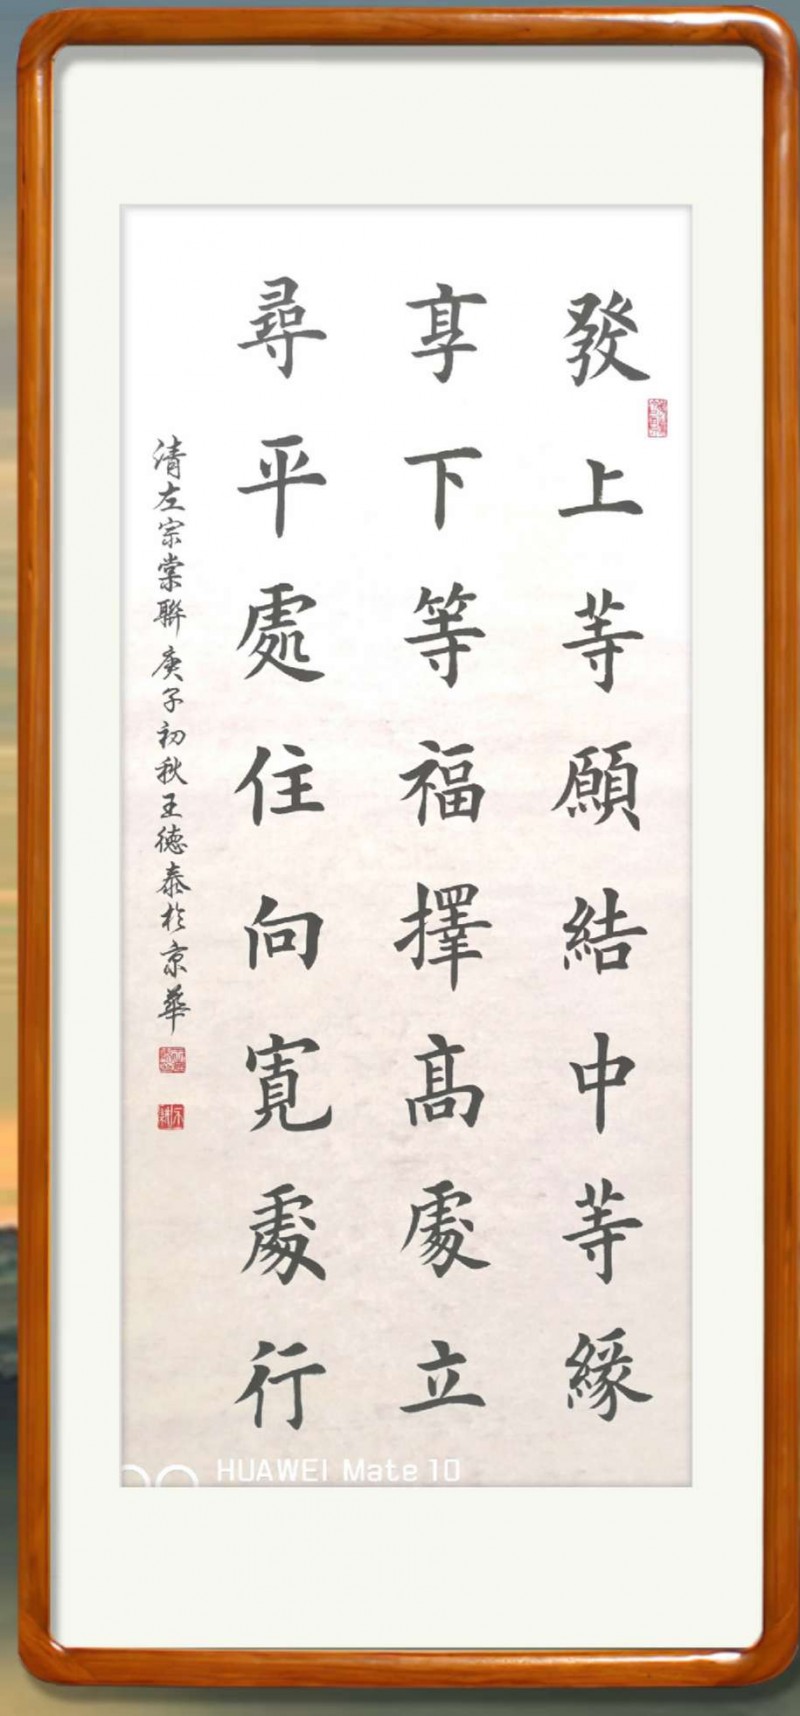 發上等願結中等緣
享下等福擇高處立
尋平處住向寬處行
清左宗棠聯庚子初秋王德泰於京華
HUAWEI Mate 10